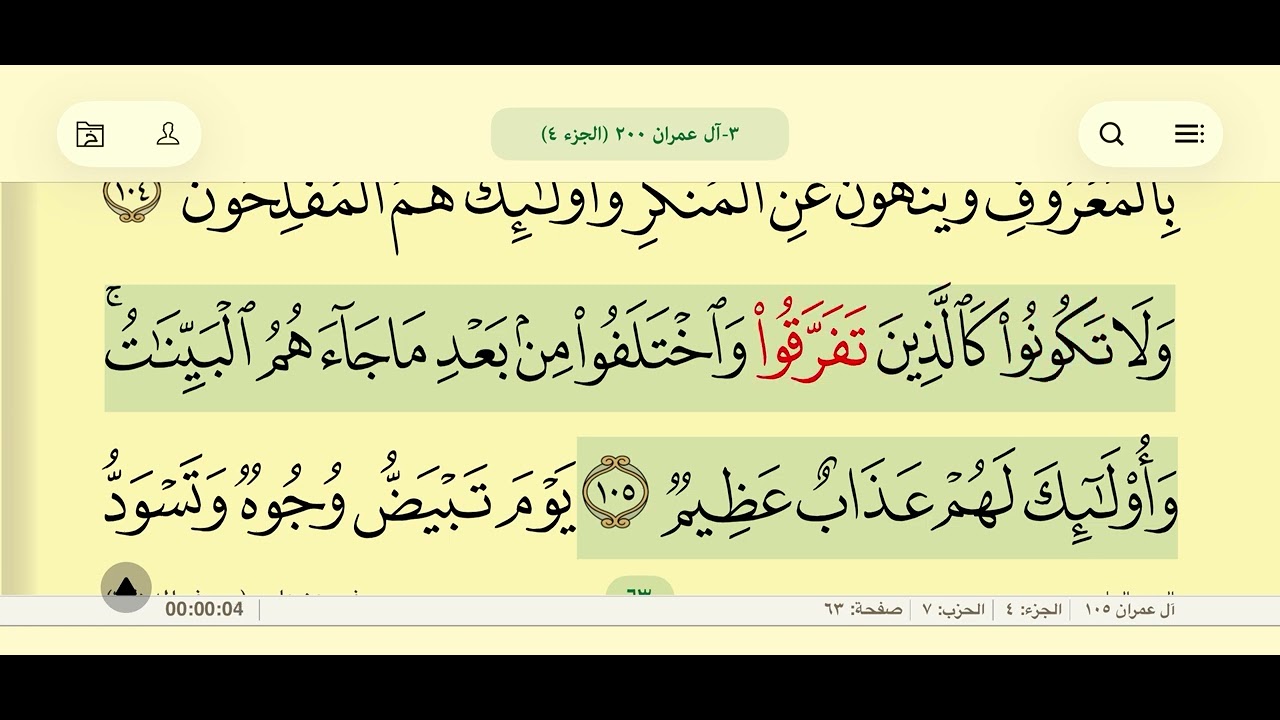 ٣-آل عمران ٢٠٠ (الجزء ٤)
بِالْمَعْرُوفِ وَيَنْهَوْنَ عَنِ الْمُنكَرِ وَأُولَـٰٓئِكَ هُمُ الْمُفْلِحُونَ ١٠٤
وَلَا تَكُونُوا۟ كَٱلَّذِينَ تَفَرَّقُوا۟ وَٱخْتَلَفُوا۟ مِنۢ بَعْدِ مَا جَآءَهُمُ ٱلْبَيِّنَـٰتُ ۚ
وَأُو۟لَـٰٓئِكَ لَهُمْ عَذَابٌ عَظِيمٌ ١٠٥ يَوْمَ تَبْيَضُّ وُجُوهٌ وَتَسْوَدُّ
٦٣
آل عمران ١٠٥ | الجزء: ٤ | الحزب: ٧ | صفحة: ٦٣ | 00:00:04